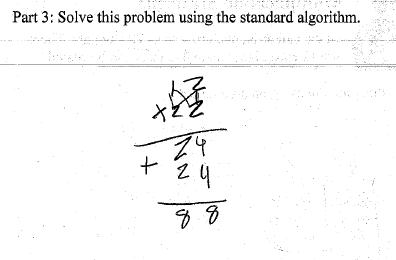 Part 3: Solve this problem using the standard algorithm.
12
×22
24
+ 24
88